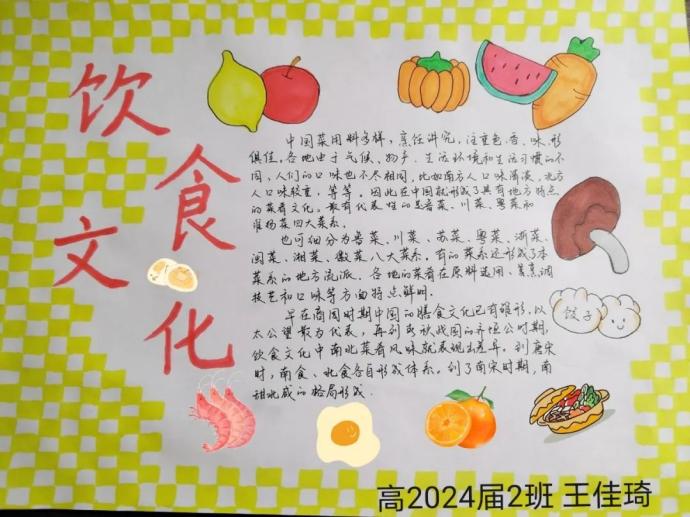 饮食
文化
中国菜用料多样，烹饪讲究，注重色、香、味、形
俱佳，各地由于气候、物产、生活环境和生活习惯的不
同，人们的口味也不尽相同，比如南方人口味清淡，北方
人口味较重，等等。因此在中国就形成了具有地方特点
的菜肴文化。最有代表性的是鲁菜、川菜、粤菜和
淮扬菜四大菜系。
也可细分为鲁菜、川菜、苏菜、粤菜、浙菜、
闽菜、湘菜、徽菜八大菜系。有的菜系还形成了本
菜系的地方流派。各地的菜肴在原料选用、烹调
技艺和口味等方面特点鲜明。
早在商周时期中国的膳食文化已有雏形，以
太公望最为代表，再到春秋战国的齐桓公时期，
饮食文化中南北菜肴风味就表现出差异。到唐宋
时，南食、北食各自形成体系。到了南宋时期，南
甜北咸的格局形成。
饺子
高2024届2班 王佳琦